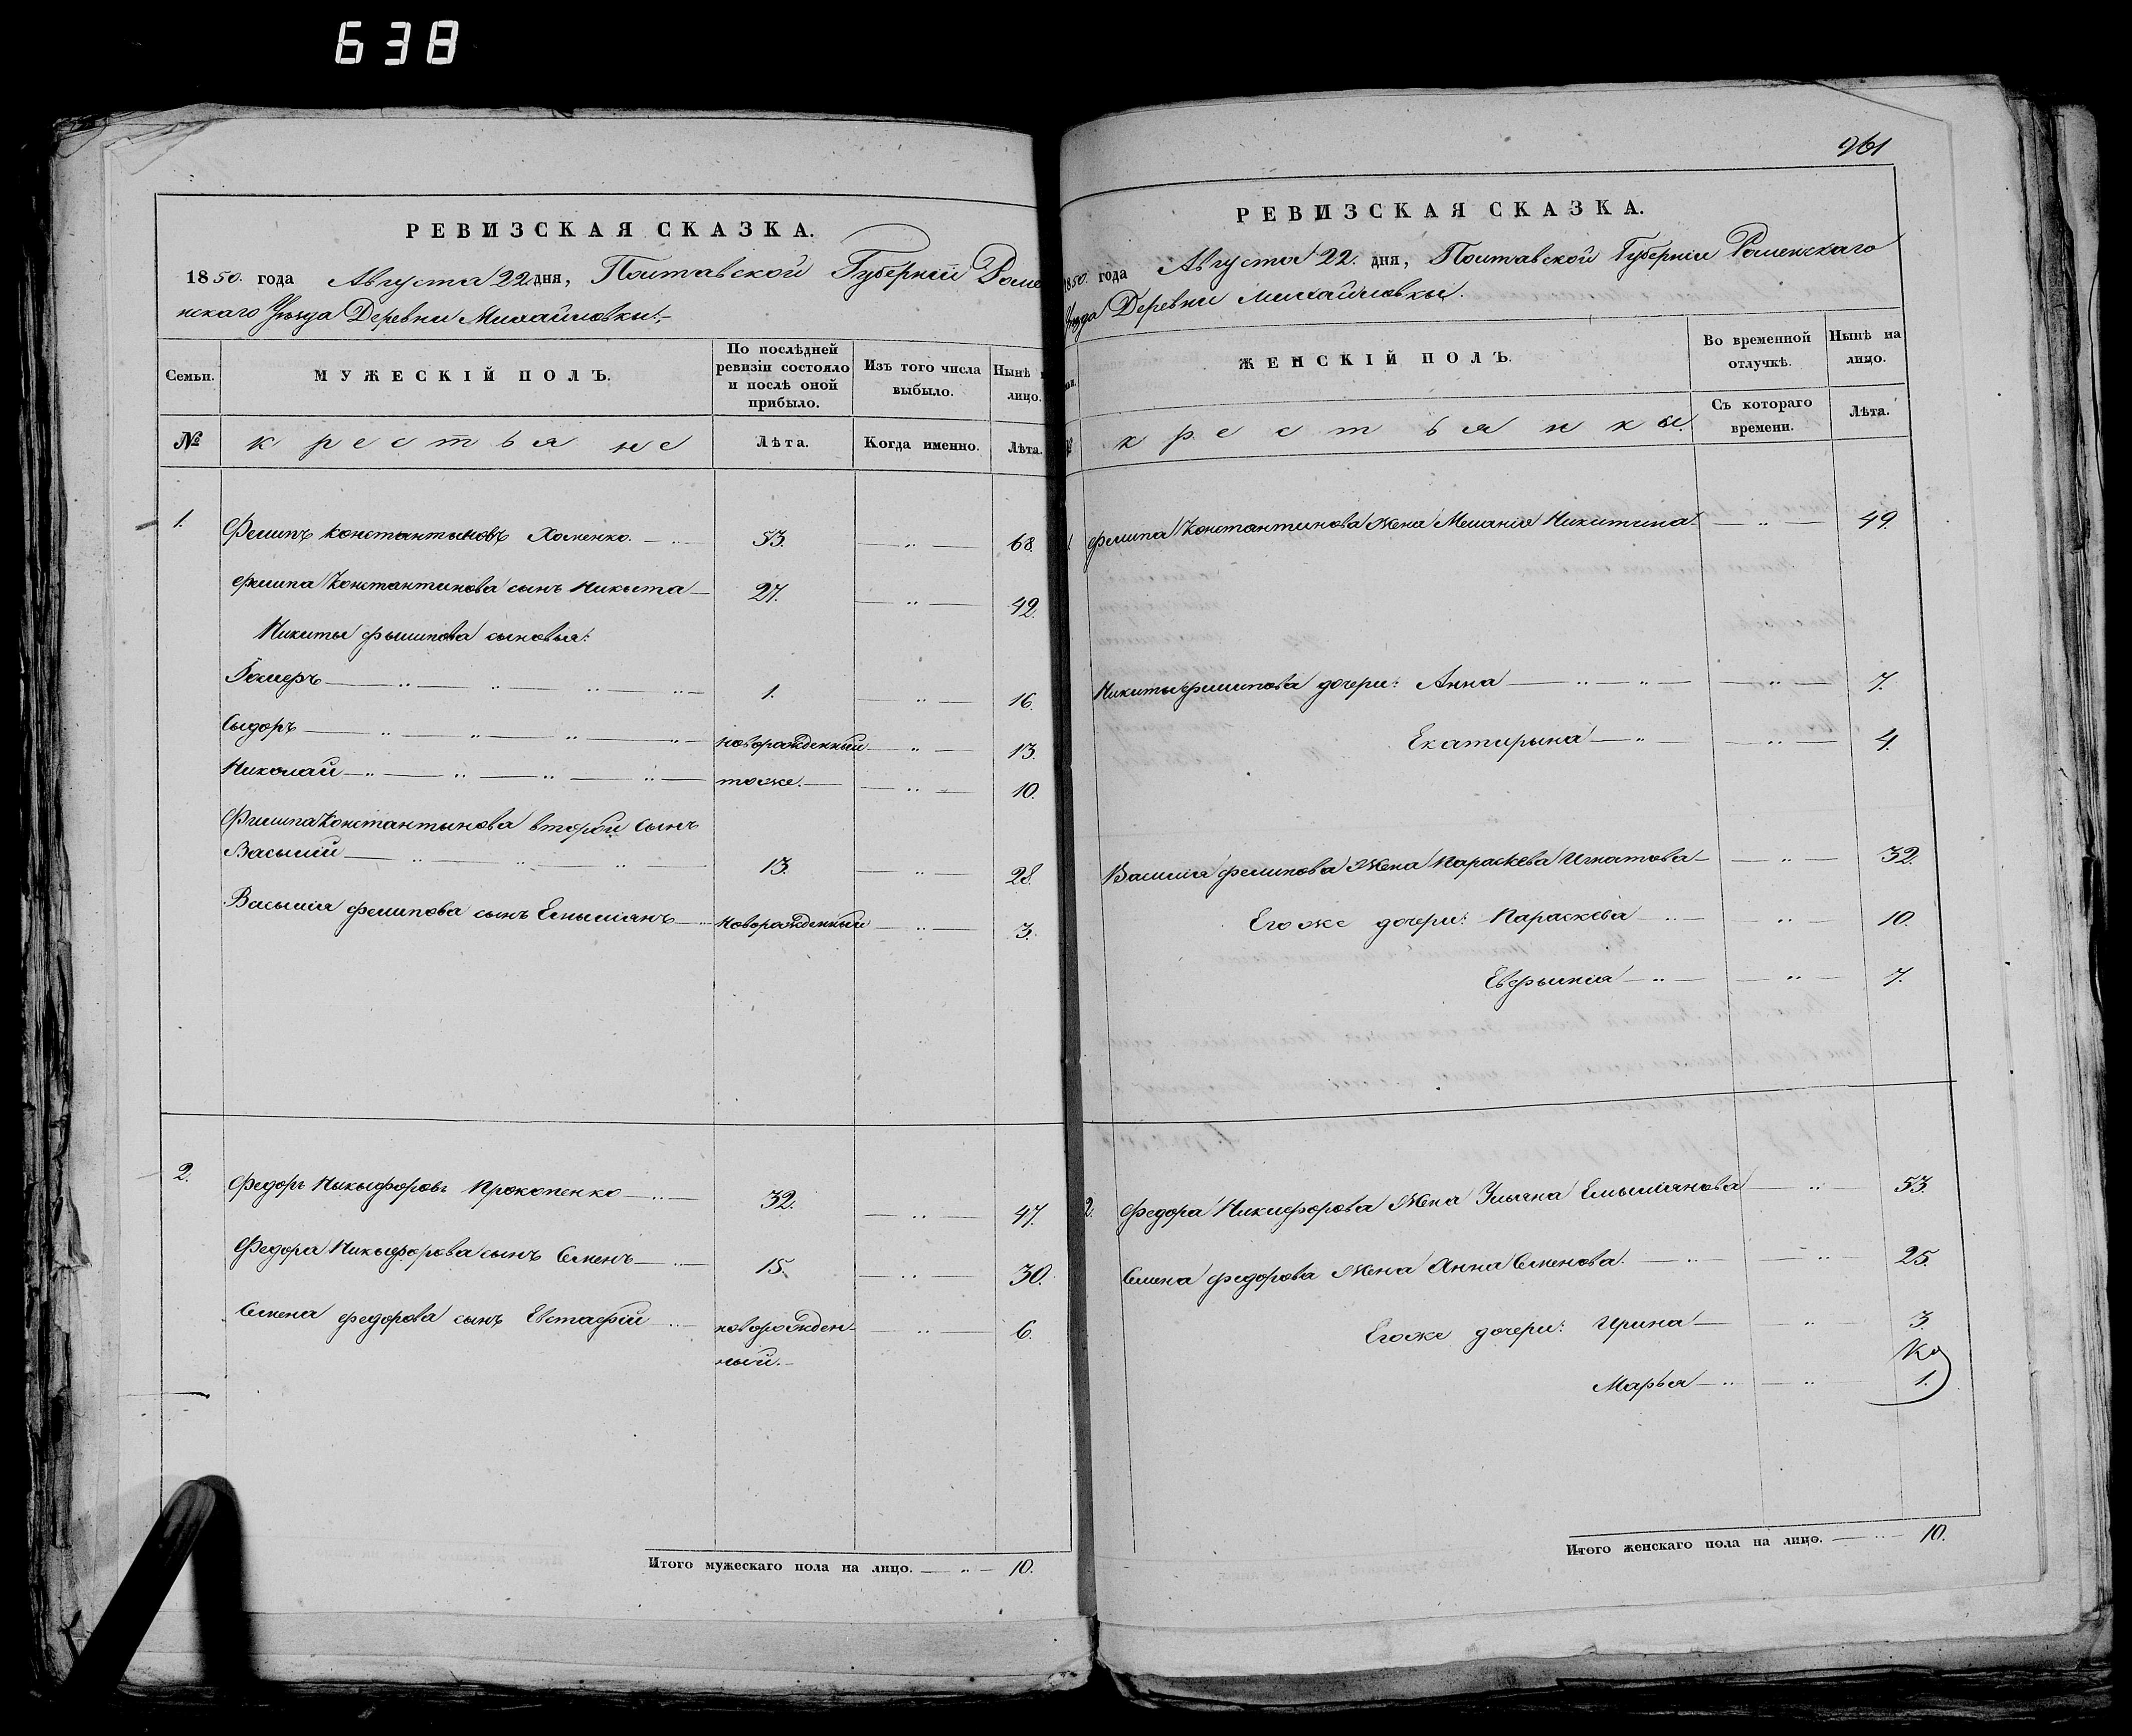 638
РЕВИЗСКАЯ СКАЗКА.
1850. года Августа 22 дня, Полтавской Губерніи Роме
нскаго Уѣзда Деревни Михайловки.
Семьи.
МУЖЕСКІЙ ПОЛЪ.
По послѣдней ревизіи состояло и послѣ оной прибыло.
Изъ того числа выбыло.
Нынѣ
лицо.
№
крестьяне
Лѣта.
Когда именно.
Лѣта.
1. Филипъ Константыновъ Хоменко. 53. 68.
Филипа Константинова сынъ Никыта 27. 42.
Никиты Филипова сыновья:
1. 16.
Сыдоръ новорожденный 13.
Николай тоже. 10.
Филипа Константынова второй сынъ
Василий 13. 28.
Василия Филипова сынъ Емылиянъ новорожденный 3.
2. Федоръ Ныкыфоровъ Прокопенко 32. 47.
Федора Никыфорова сынъ Семенъ 15. 30.
Семена Федорова сынъ Евстафій новорожден- 6.
ный.
Итого мужескаго пола на лицо. 10.
961
РЕВИЗСКАЯ СКАЗКА.
1850. года Августа 22. дня, Полтавской Губерніи Роменскаго
Уѣзда Деревни Михайловки.
ЖЕНСКІЙ ПОЛЪ.
Во временной отлучкѣ.
Нынѣ на лицо.
крестьянки.
Съ котораго времени.
Лѣта.
Филипа Константинова Жена Меланія Никитина. 49.
Никиты Филипова дочери: Анна 7.
Екатирына 4.
Василия Филипова Жена Параскева Игнатова 32.
Его же дочери: Параскева 10.
Евфымія 7.
2. Федора Никифорова Жена Ульяна Емылиянова 53.
Семена Федорова Жена Анна Семенова. 25.
Его же дочери: Ирина 3.
Марья 1.
Итого женскаго пола на лицо. 10.